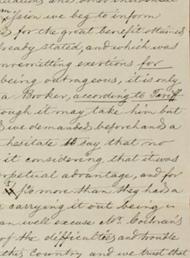 we beg to inform
, for the great benefit obtained
ready stated, and which was
unremitting exertions for
being outrageous, it is only
a Broker, according to Tariff
ough it may take him but
we demanded beforehand a
hesitate to say that no
it considering that it was
rpetual advantage, and for
us more than they had a
carrying it out being in
an well excuse Mr. Cochran's
of the difficulties and trouble
this Country and we trust that